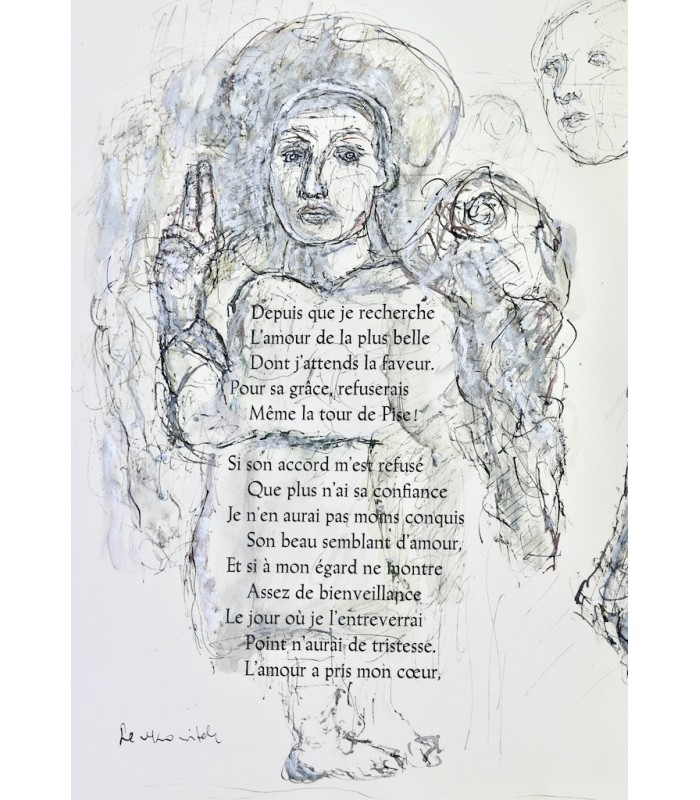 Depuis que je recherche
L'amour de la plus belle
Dont j'attends la faveur.
Pour sa grâce, refuserais
Même la tour de Pise !
Si son accord m'est refusé
Que plus n'ai sa confiance
Je n'en aurai pas moins conquis
Son beau semblant d'amour,
Et si à mon égard ne montre
Assez de bienveillance
Le jour où je l'entreverrai
Point n'aurai de tristesse.
L'amour a pris mon cœur,